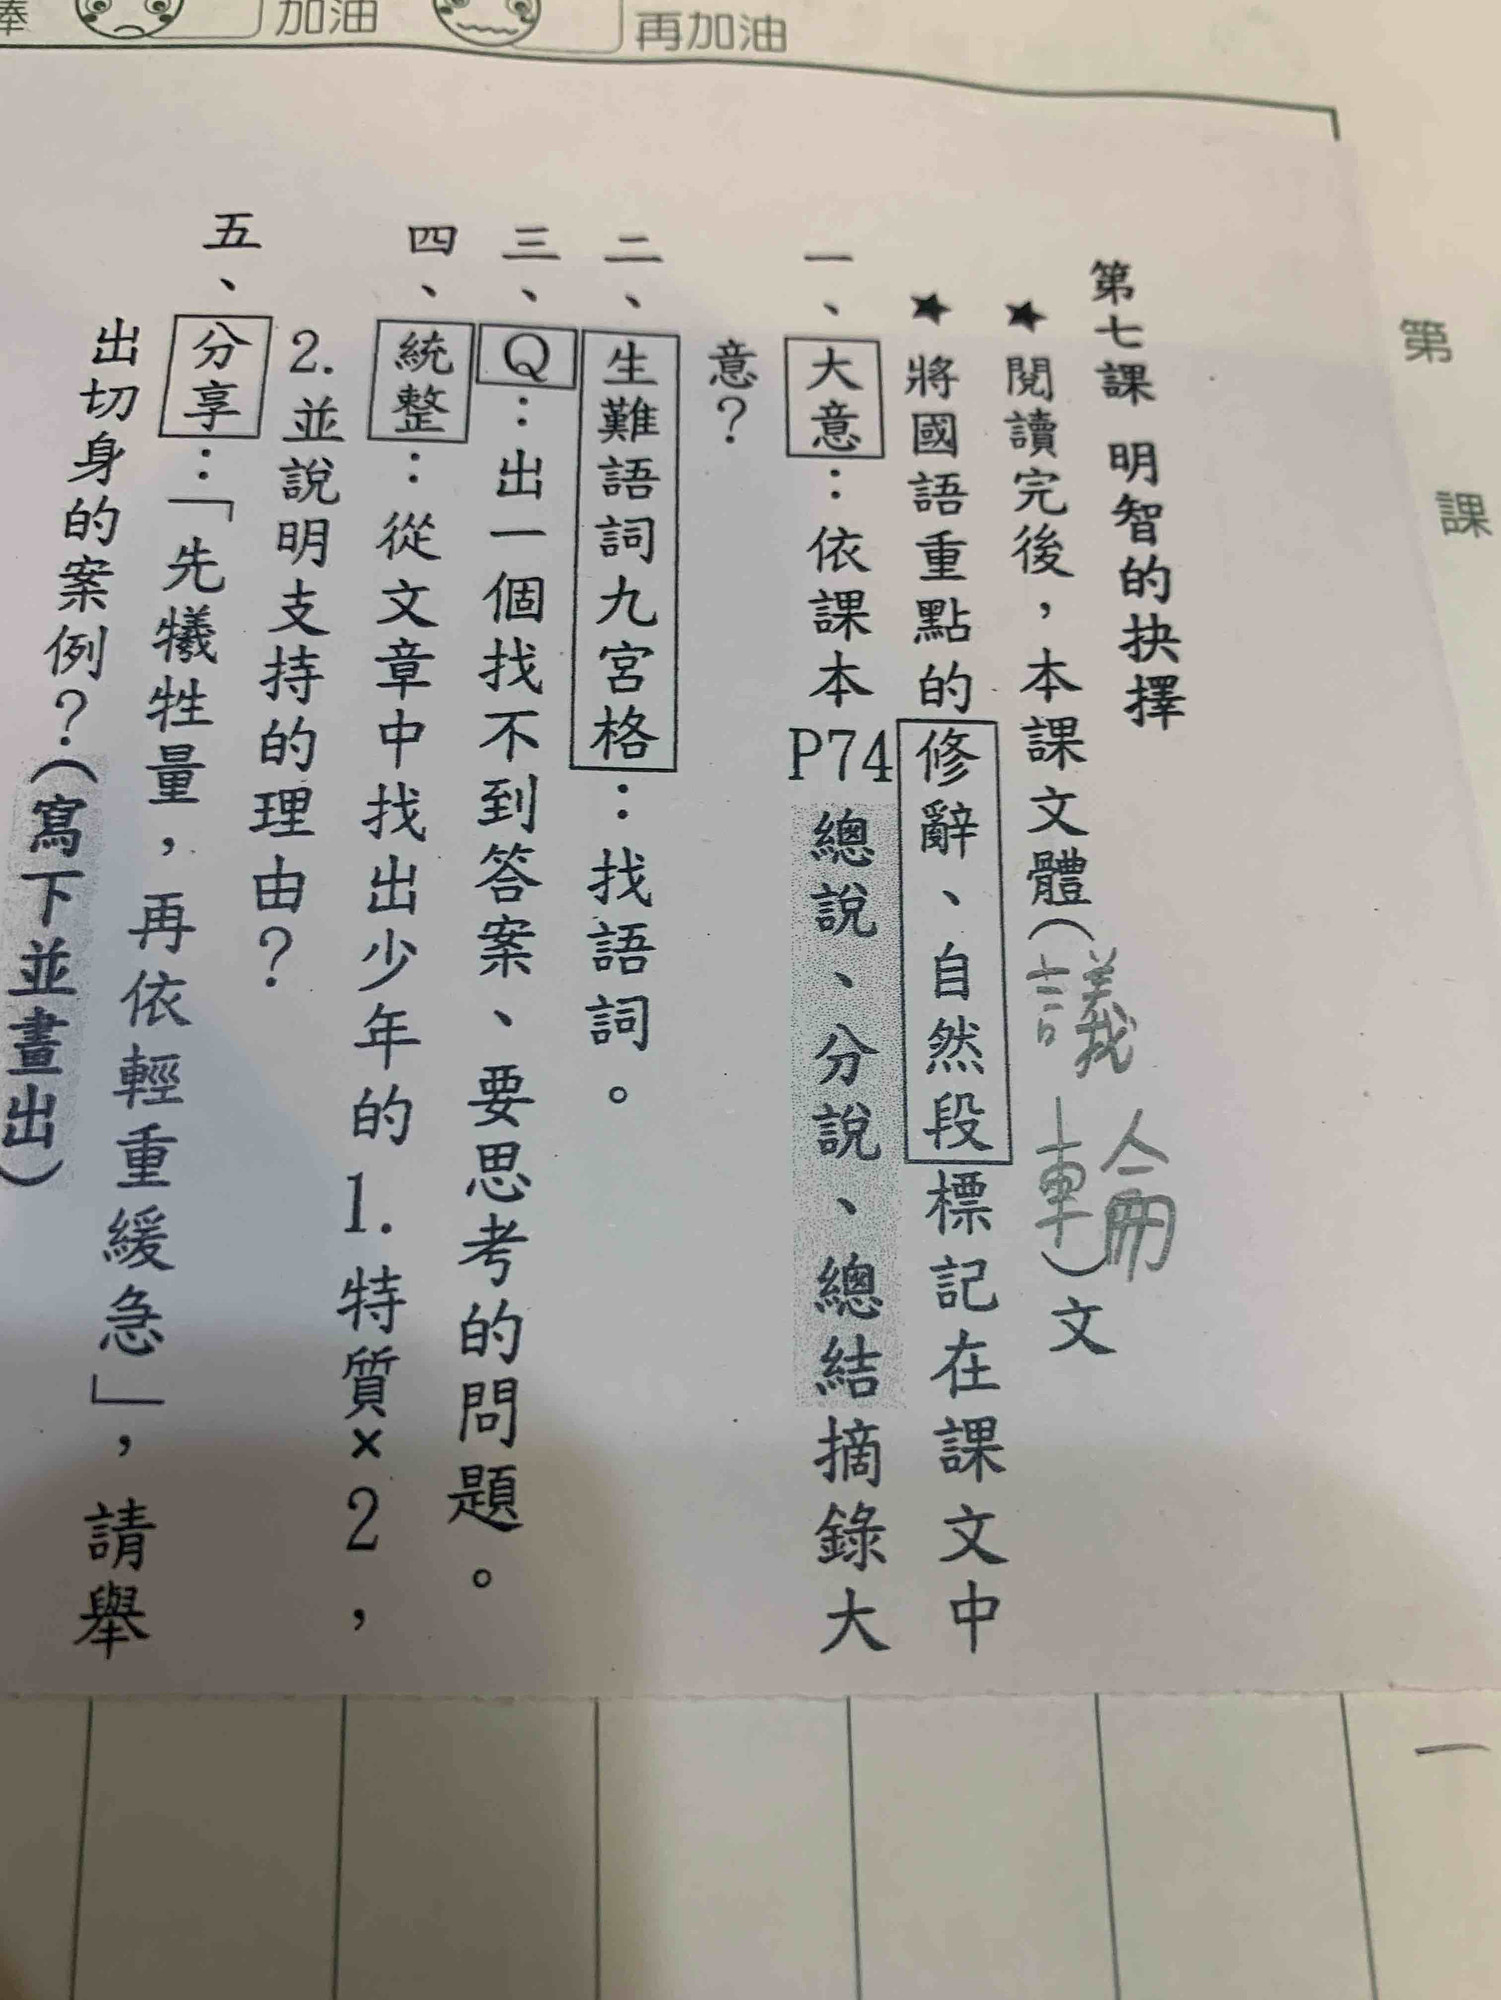 加油
再加油
第 課
第七課 明智的抉擇
★閱讀完後，本課文體(議輪)文
★將國語重點的修辭、自然段標記在課文中
一、大意：依課本P74總說、分說、總結摘錄大
意？
二、生難語詞九宮格：找語詞。
三、Q：出一個找不到答案、要思考的問題。
四、統整：從文章中找出少年的1.特質×2，
2.並說明支持的理由？
五、分享：「先犧牲量，再依輕重緩急」，請舉
出切身的案例？(寫下並畫出)
一